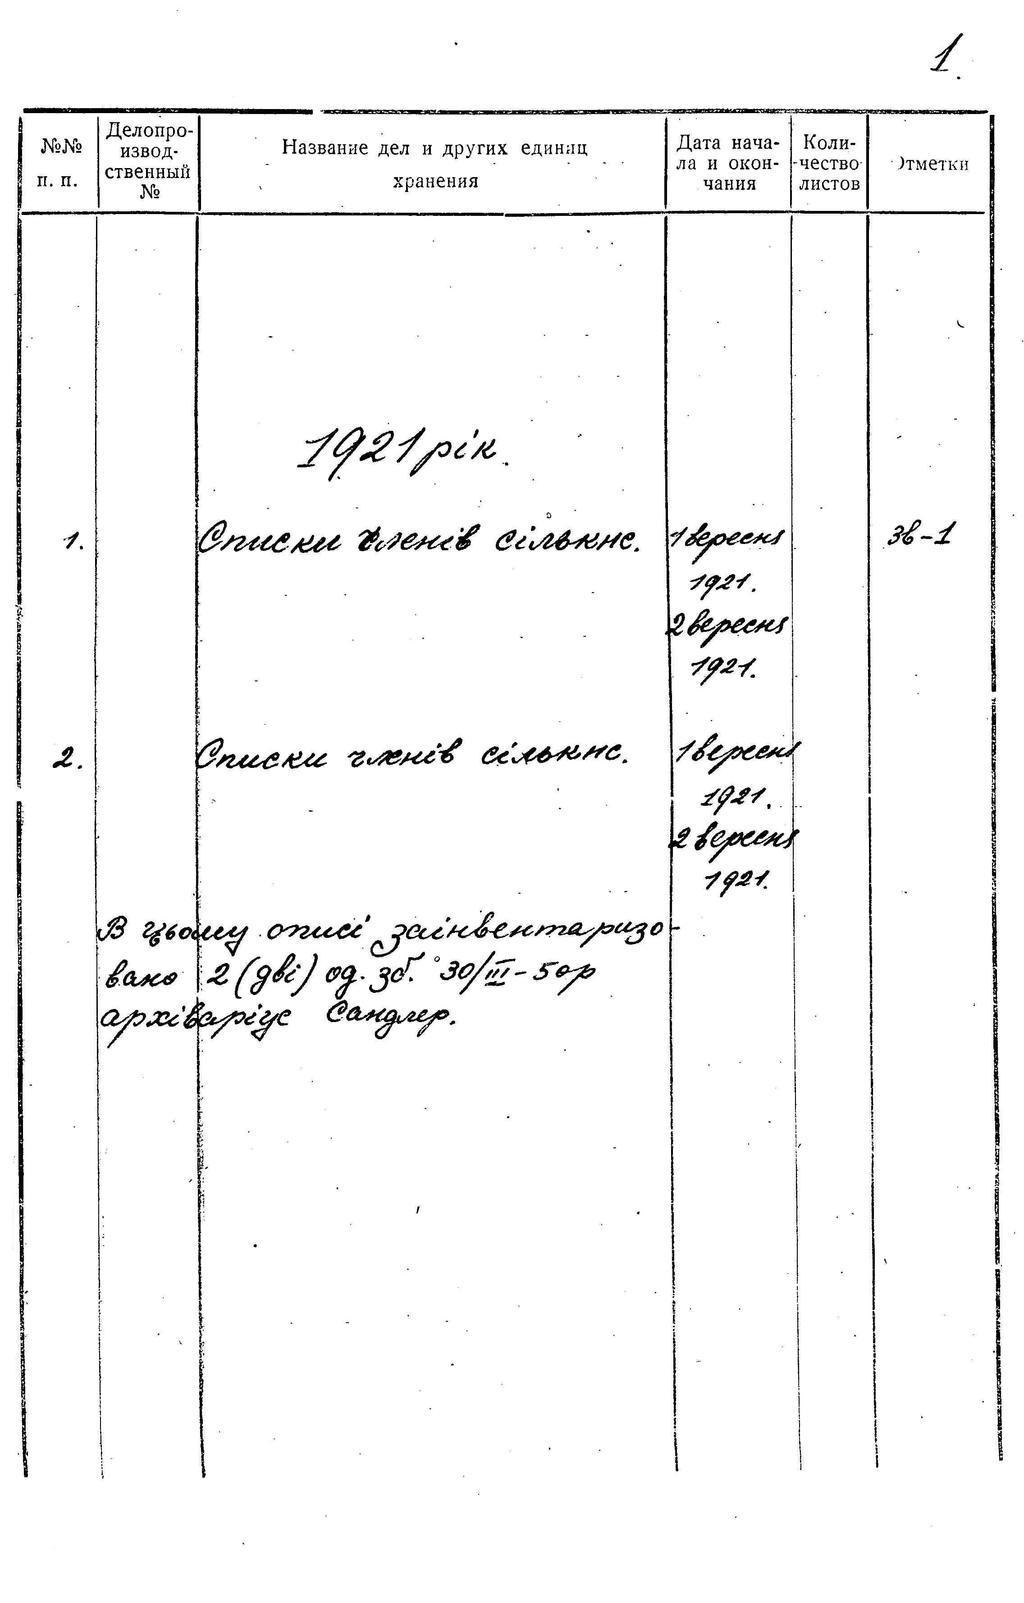 1.
№№ п. п.
Делопро-
извод-
ственный
№
Название дел и других единиц
хранения
Дата нача-
ла и окон-
чания
Коли-
чество
листов
Отметки
1921 рік.
1. Списки членів сількнс. 1 вересня Зв-1
1921.
2 вересня
1921.
2. Списки членів сількнс. 1 вересня
1921.
2 вересня
1921.
В цьому описі заінвентаризо-
вано 2 (дві) од. зб. 30/III-50р
архіваріус Сандлер.